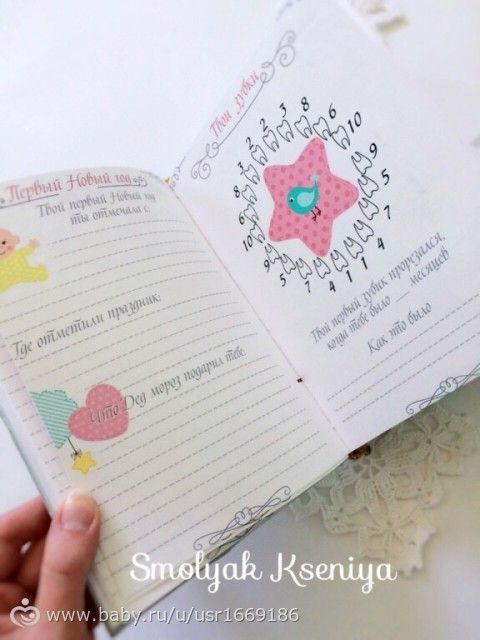 Первый Новый год
Твой первый Новый год
ты отмечала с:
Где отметили праздник:
Что Дед мороз подарил тебе:
Твои зубки
8 3 2 2 3 8 6 10 9 5 7 4 1 1 4 7 5 9 10 6
Твой первый зубик прорезался,
когда тебе было ___ месяцев
Как это было
Smolyak Kseniya
www.baby.ru/u/usr1669186